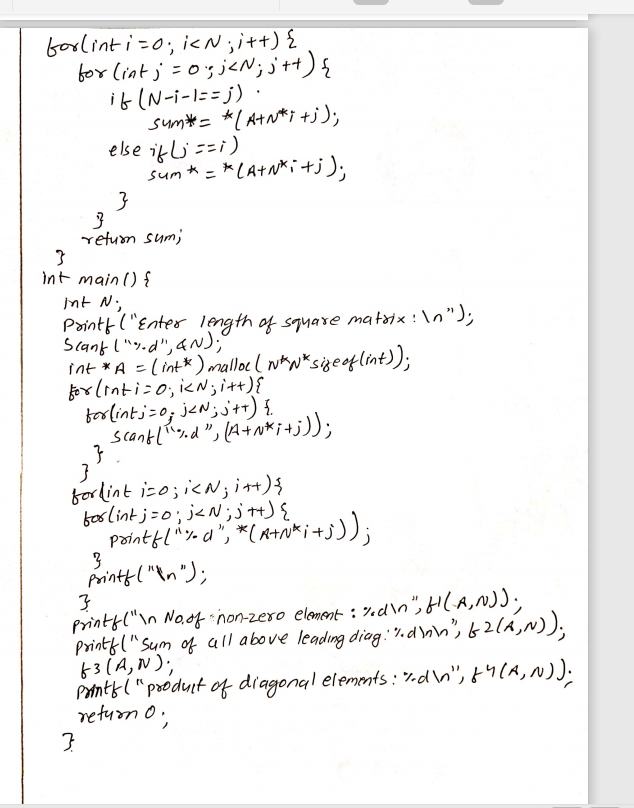 for(int i=0; i<N; i++) {
for (int j = 0; j<N; j++) {
if (N-i-1==j)
sum*= *(A+N*i+j);
else if(j==i)
sum *= *(A+N*i+j);
}
}
return sum;
}
int main() {
int N;
Printf("Enter length of square matrix :\n");
Scanf ("%d", &N);
int *A = (int*) malloc( N*N*sizeof(int));
for(int i=0; i<N; i++){
for(int j=0; j<N; j++) {
Scanf("%d", (A+N*i+j));
}
}
for(int i=0; i<N; i++){
for(int j=0; j<N; j++) {
printf("%d", *(A+N*i+j));
}
printf("\n");
}
printf("\n No.of non-zero element : %d\n", f1(A,N));
printf("Sum of all above leading diag: %d\n\n", f2(A,N));
f3(A,N);
printf("product of diagonal elements: %d\n", f4(A,N));
return 0;
}